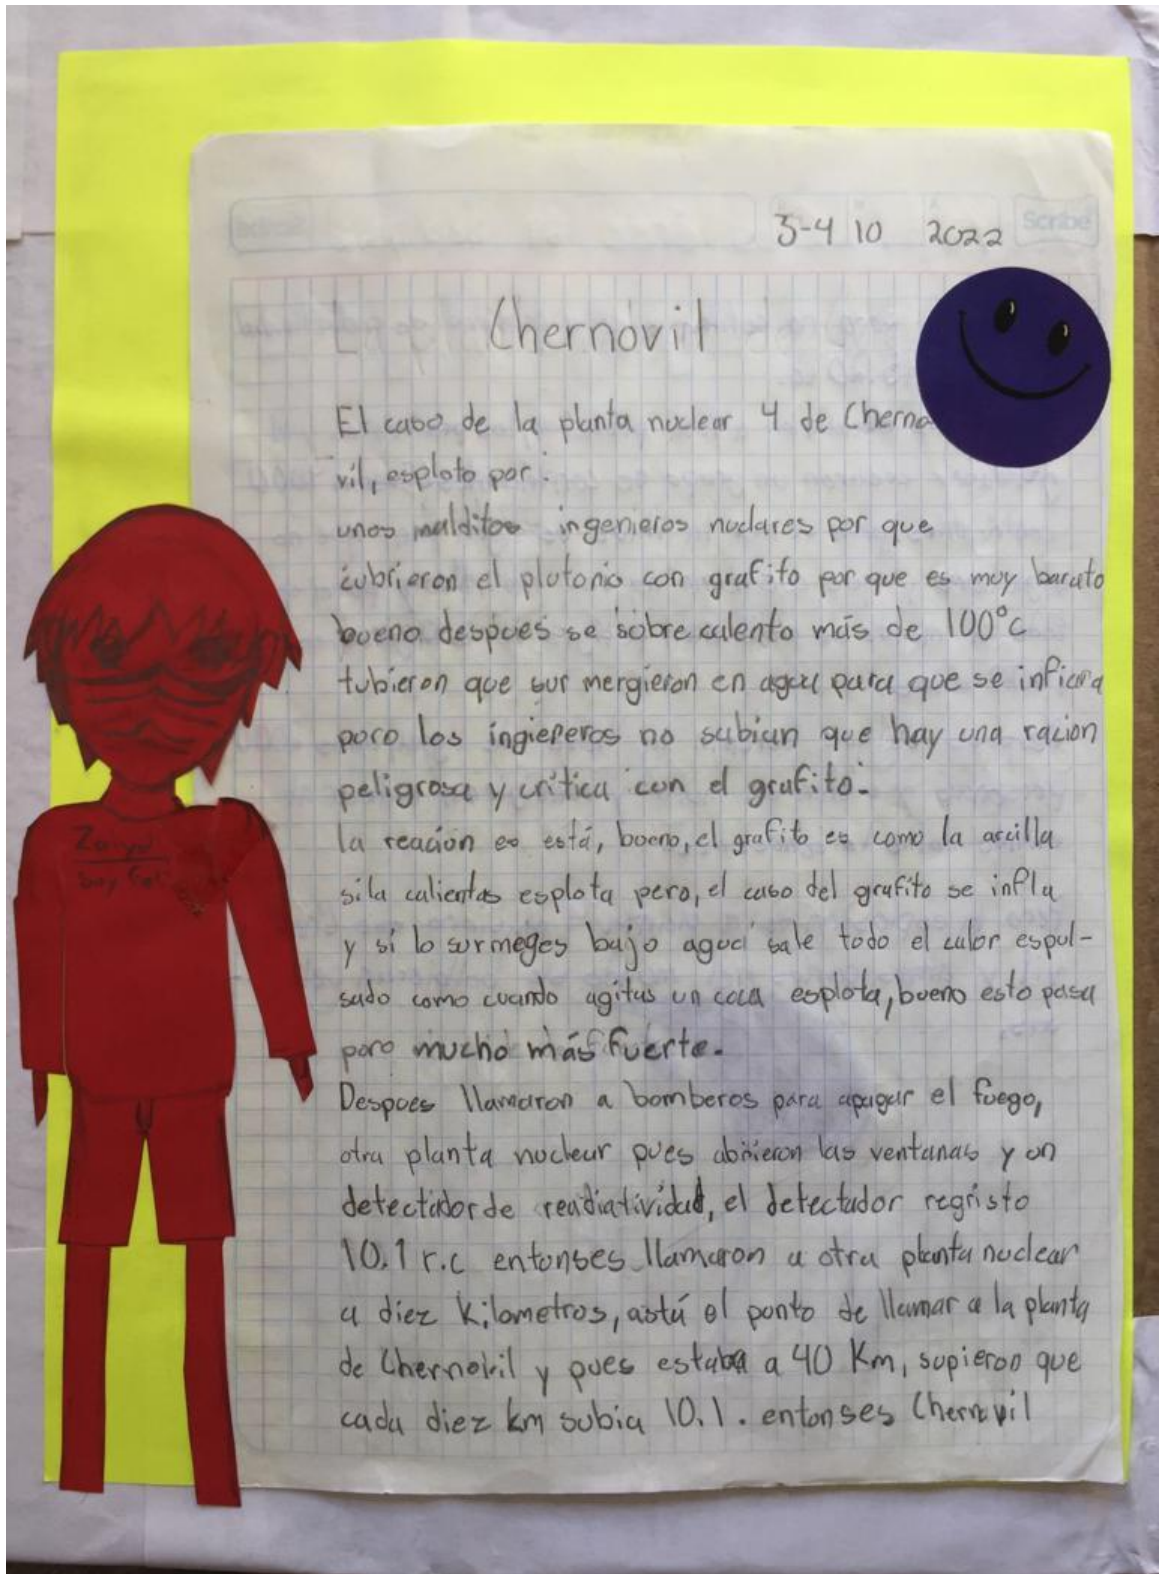 3-4 10 2022
Scribe
Chernovil
El caso de la planta nuclear 4 de Cherno
vil, esploto por:
unos malditos ingenieros nuclares por que
cubrieron el plutonio con grafito por que es muy barato
bueno despues se sobre calento más de 100°c
tubieron que sur mergieron en agua para que se infiara
poro los ingieneros no sabian que hay una racion
peligrosa y crítica con el grafito.
la reación es está, bueno, el grafito es como la arcilla
si la calientas esplota pero, el caso del grafito se infla
y si lo surmeges bajo agua sale todo el calor espul-
sado como cuando agitas un coca esplota, bueno esto pasa
poro mucho más fuerte.
Despues llamaron a bomberos para apagar el fuego,
otra planta nuclear pues abrieron las ventanas y un
detectador de readiatividad, el detectador regristo
10.1 r.c entonses llamaron a otra planta nuclear
a diez kilometros, astá el ponto de llamar a la planta
de Chernobil y pues estaba a 40 Km, supieron que
cada diez km subia 10.1. entonses Chernovil